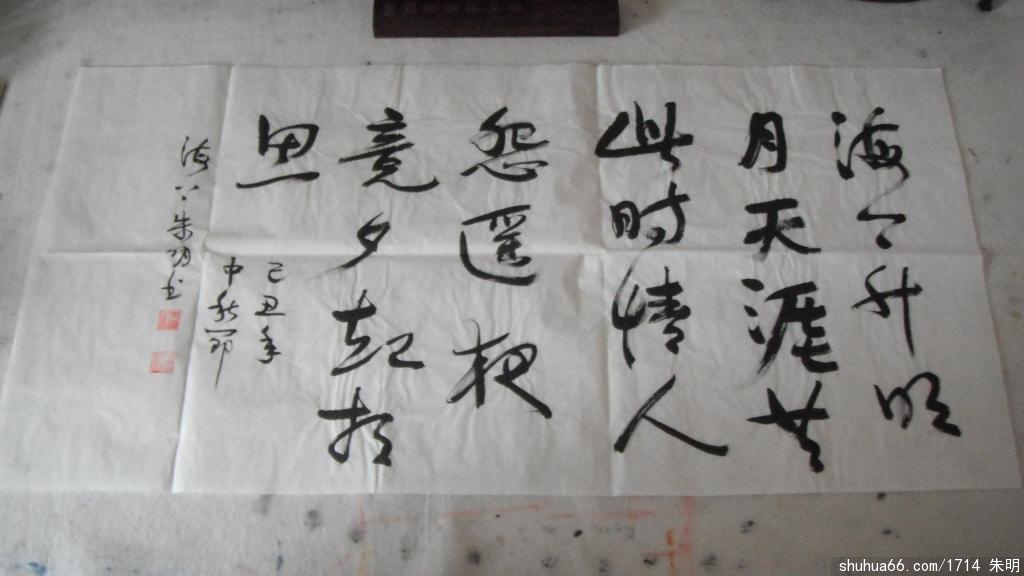 海上升明
月天涯共
此时情人
怨遥夜
竟夕起相
思
己丑年
中秋节
海上朱明书
shuhua66.com/1714 朱明